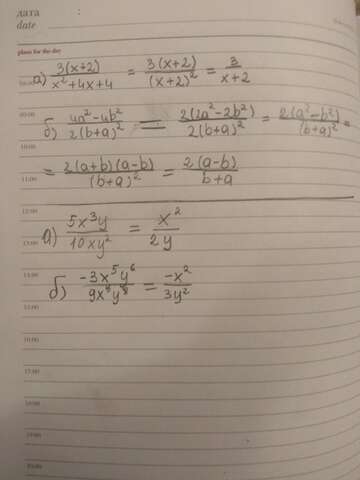 дата
date
plans for the day
а) 3(x+2)/(x²+4x+4) = 3(x+2)/(x+2)² = 3/(x+2)
09:00
б) (4a²-4b²)/(2(b+a)²) = 2(2a²-2b²)/(2(b+a)²) = 2(a²-b²)/(b+a)² =
10:00
= 2(a+b)(a-b)/(b+a)² = 2(a-b)/(b+a)
11:00
12:00
а) 5x³y/(10xy²) = x²/(2y)
13:00
14:00
б) -3x⁵y⁶/(9x³y⁸) = -x²/(3y²)
15:00
16:00
17:00
18:00
19:00
20:00